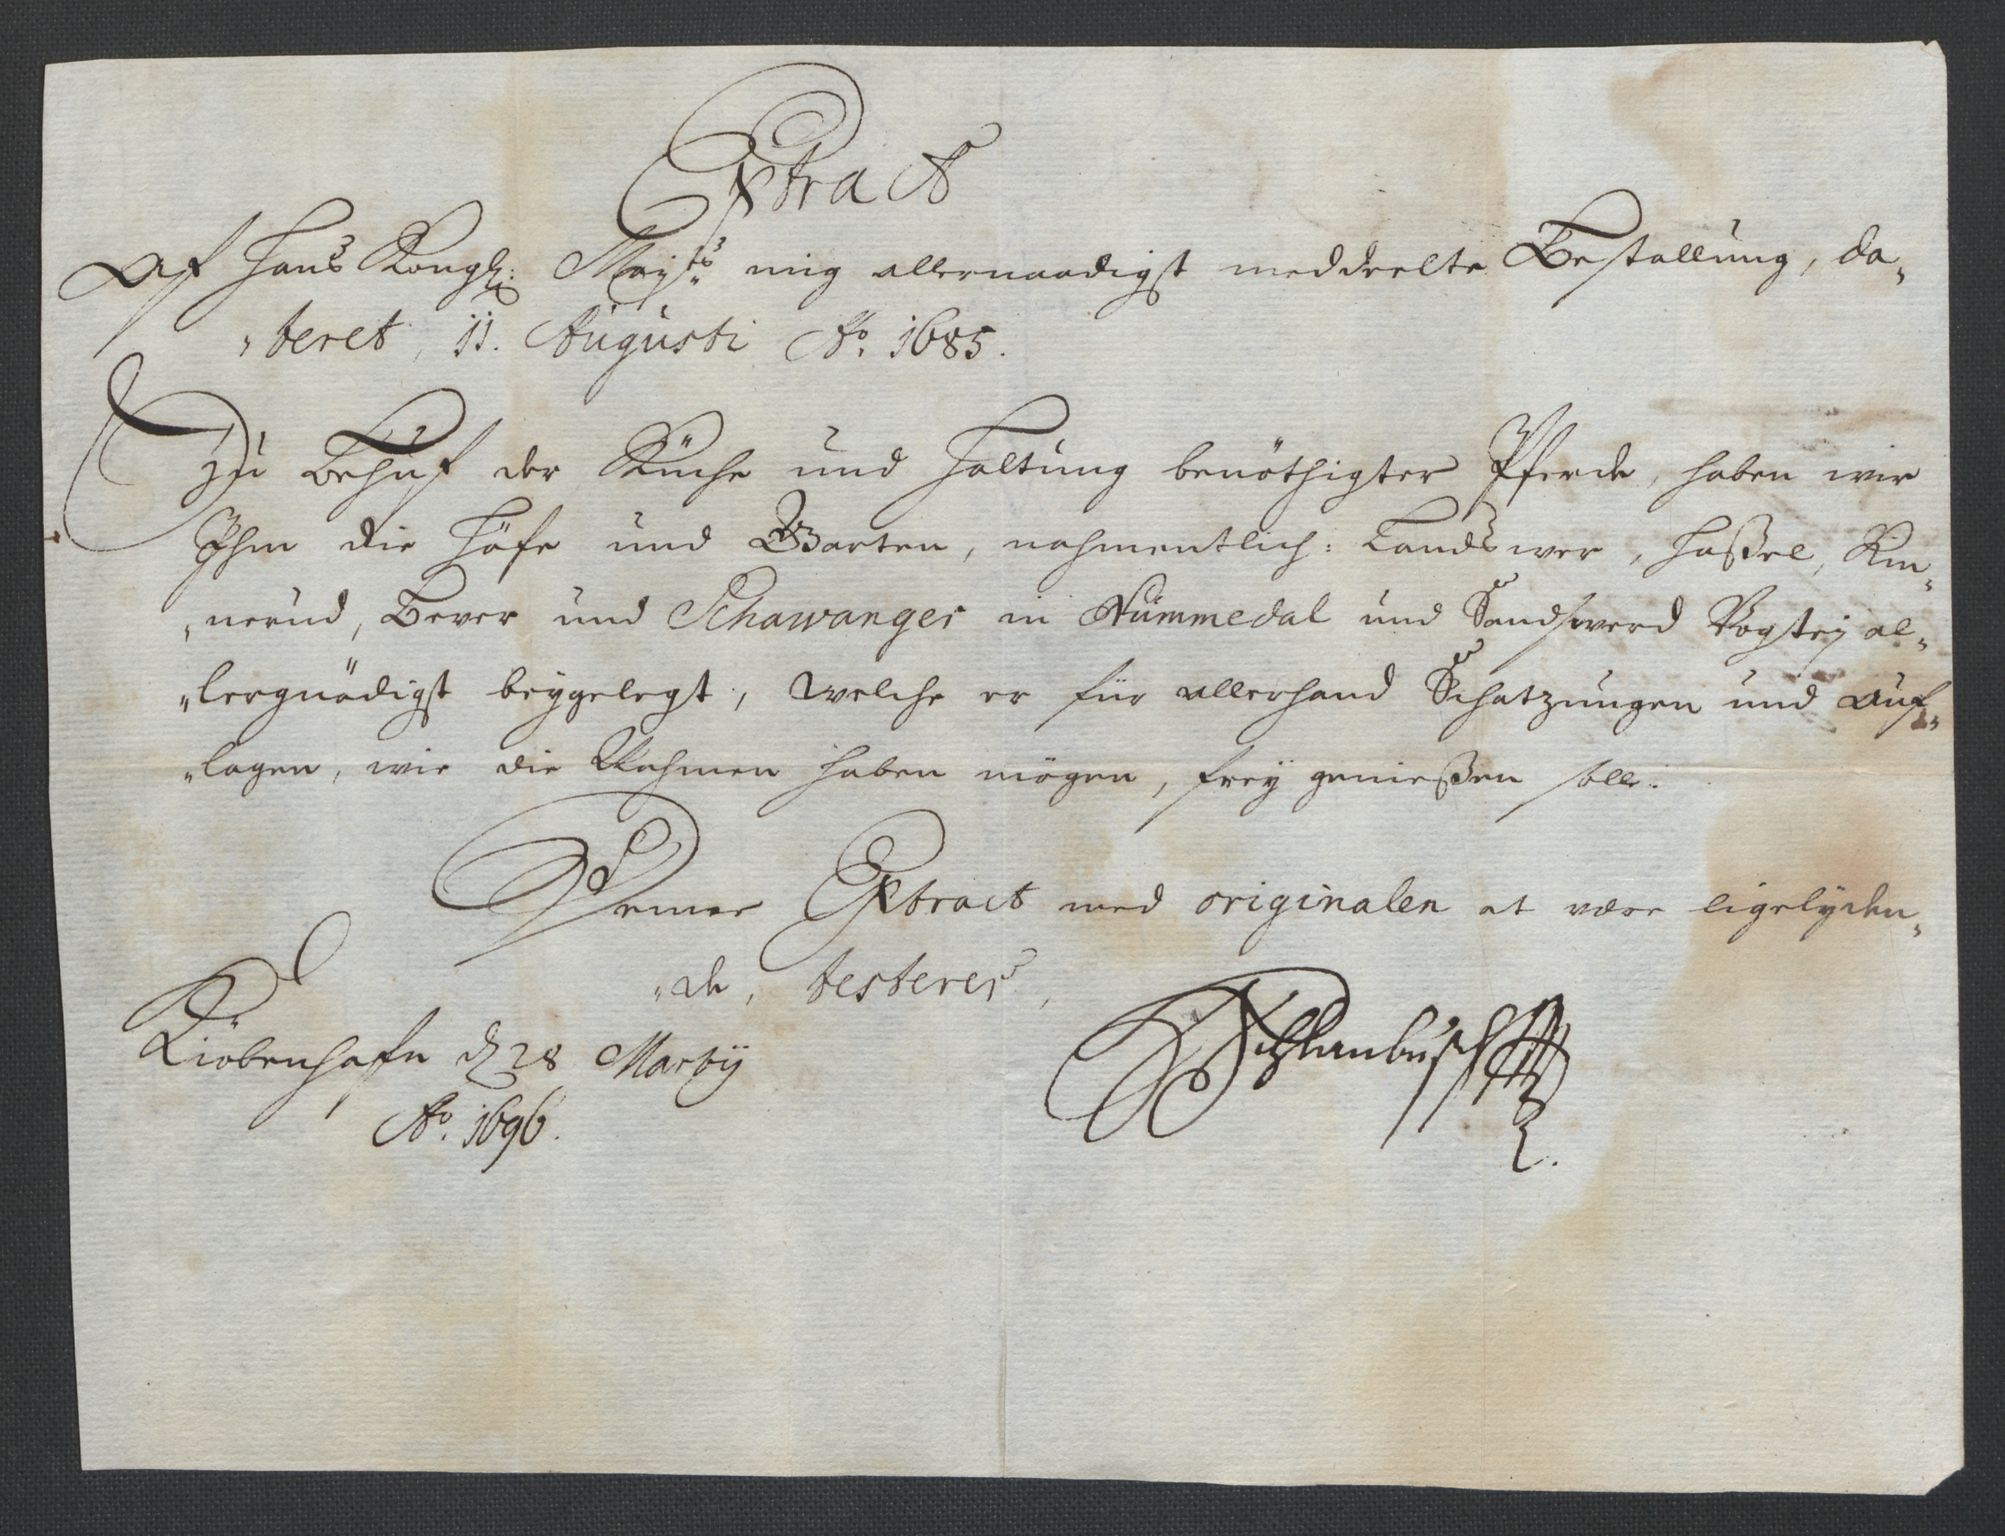 Extract
Af Hans Kongl: Mayts: mig allernaadigst meddeelte Bestallung, da-
teret, 11. Augusti Ao. 1685.
Zu Behuf der Küche und Haltung benöthigter Pferde, haben wir
Ihm die Höfe und Warten, nahmentlich: Landswer, Haßel, Rin-
nerud, Bever und Schawanger in Nummedal und Sandswerd Vogtey al-
lergnädigst beygelegt, welche er für allerhand Schatzungen und Auf-
lagen, wie die Nahmen haben mögen, frey genießen solle.
Denne Extract med originalen at være ligelyden-
de, testerer,
Kiöbenhafn d 28 Martij
Ao. 1696.
Schlanbusch